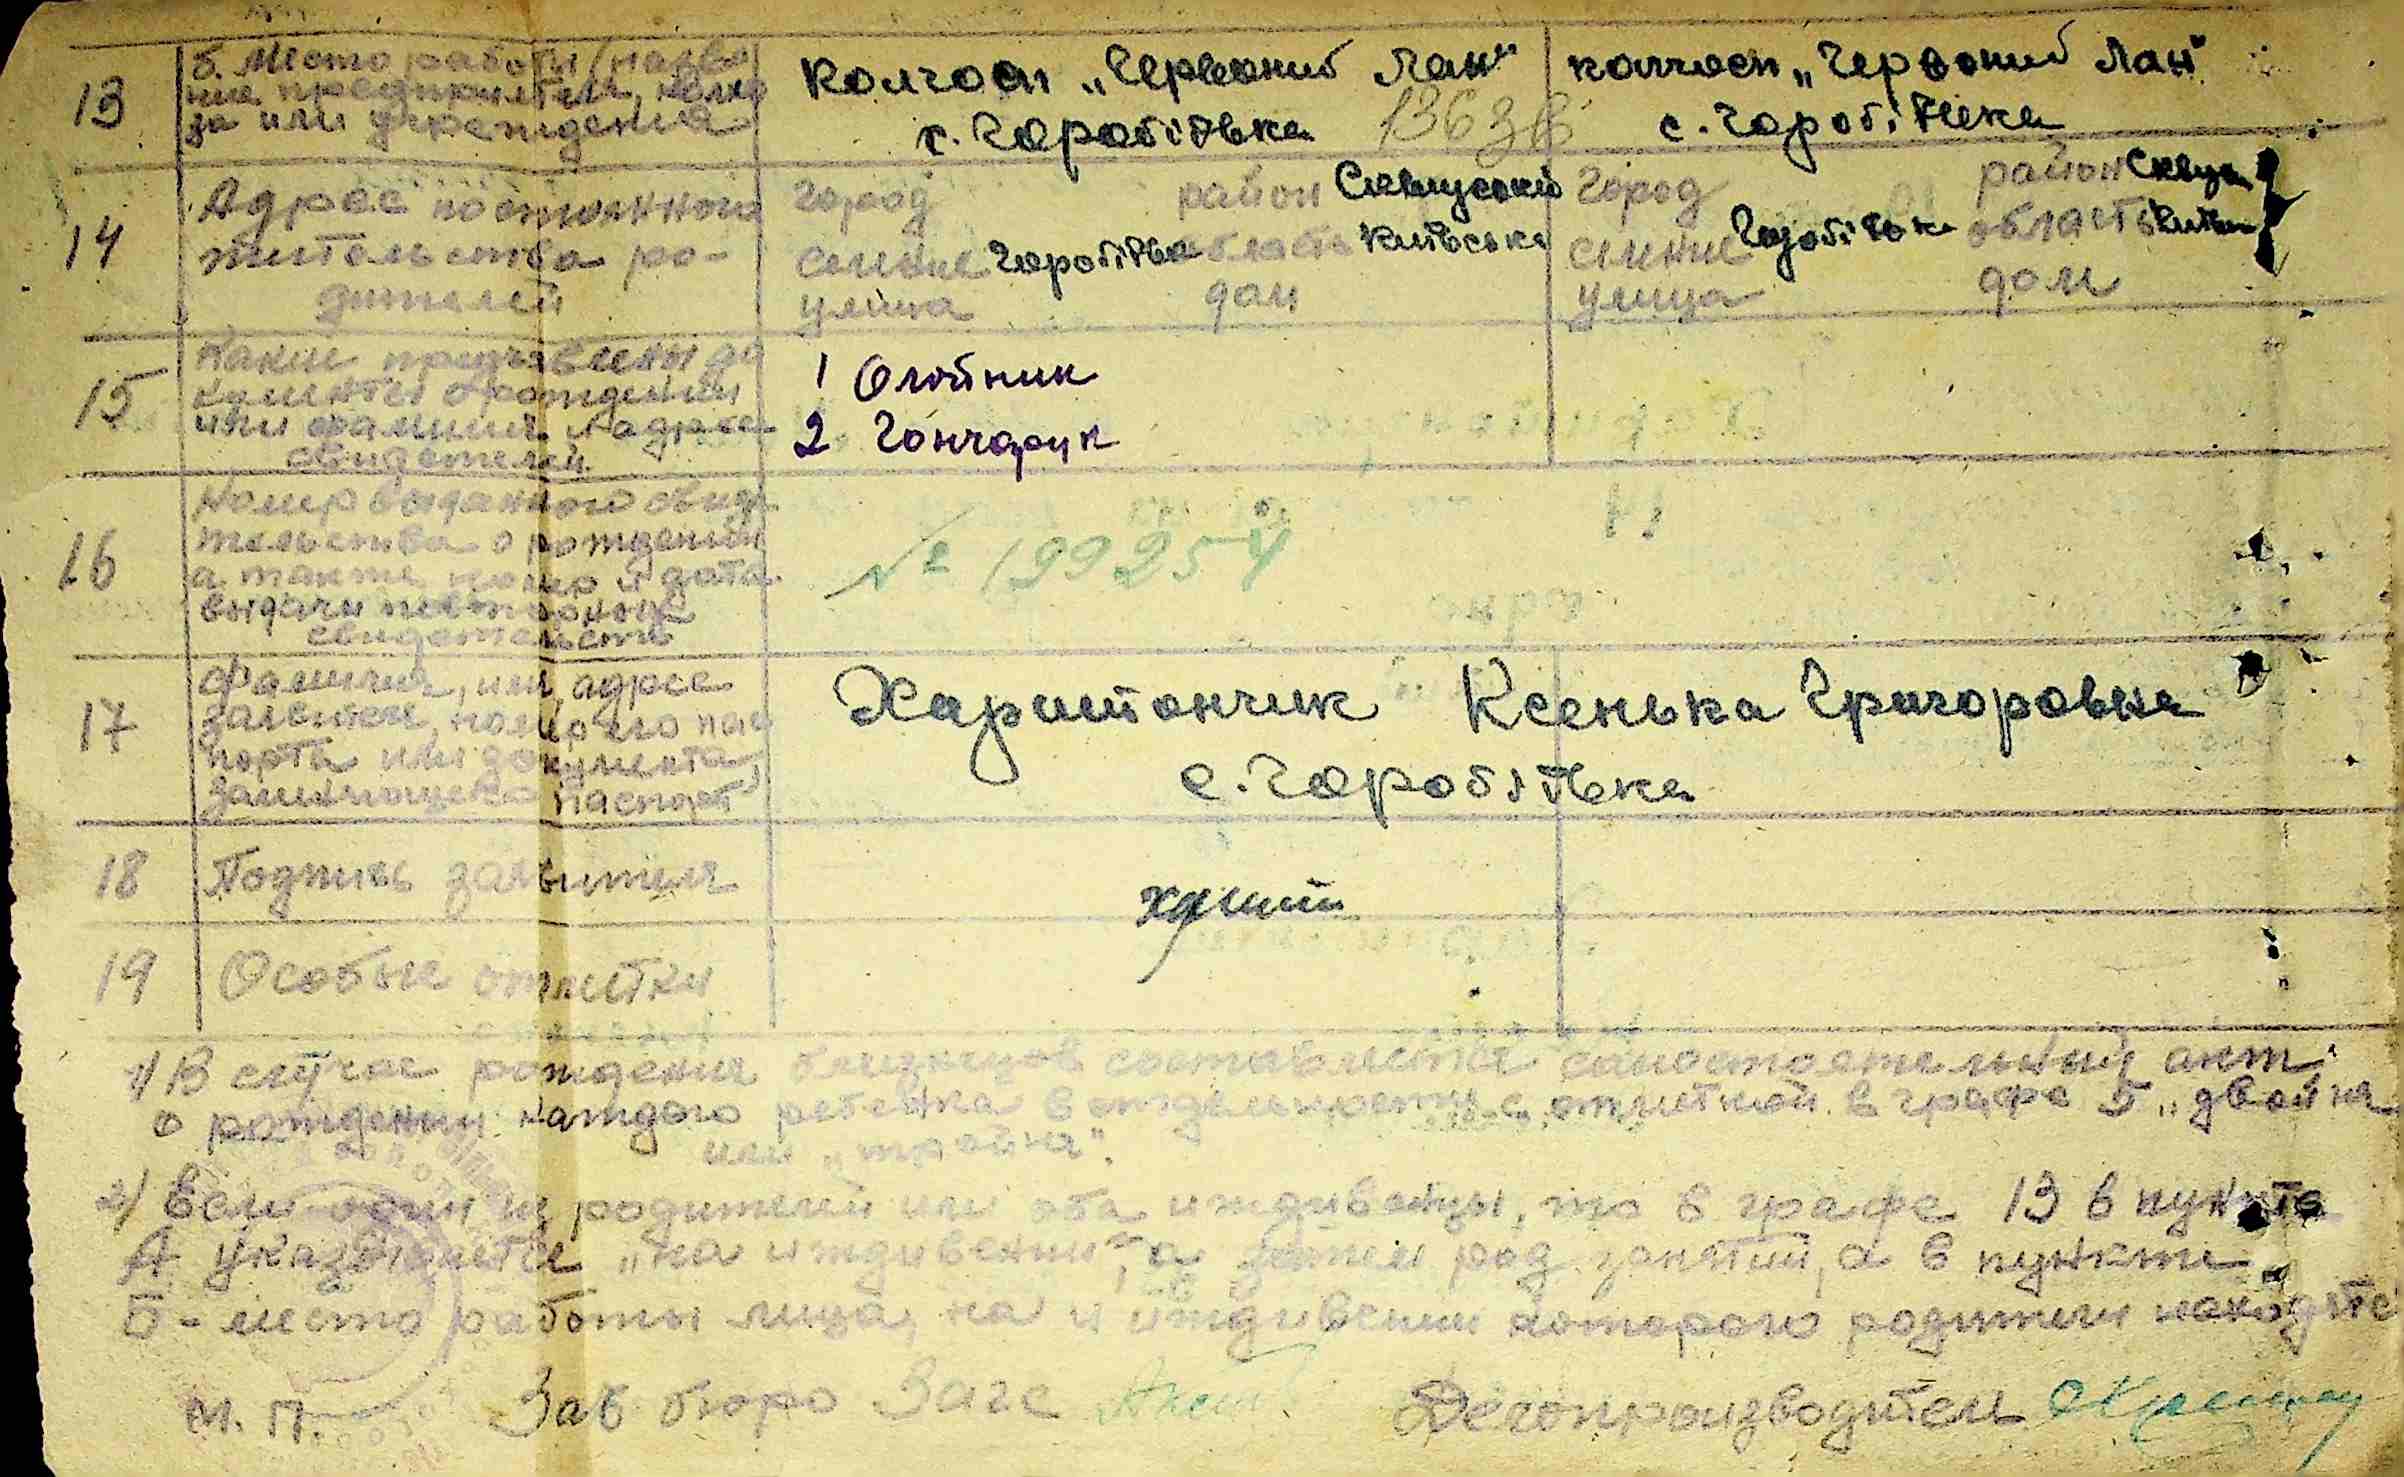 13
б. Место работы (назва
ние предприятия, колхо
за или учреждения
Колгосп „Червоний Лан“
с. Горобіївка
136 зв
колгосп „Червоний Лан“
с. Горобіївка
14
Адрес постоянного
жительства ро-
дителей
город район Сквирський
селение Горобіївка область Київська
улица дом
город район Сквир
селение Горобіївка область Київ
улица дом
15
Какие предъявлены до
кументы о рождении
или фамилия и адреса
свидетелей
1 Олійник
2 Гончарук
16
Номер выданного свиде
тельства о рождении
а также номер и дата
выдачи повторного
свидетельства
№ 199254
17
Фамилия, имя, адрес
заявителя, номер его пас
порта или документа,
заменяющего паспорт
Харитончик Ксенька Григоровна
с. Горобіївка
18
Подпись заявителя
19
Особые отметки
1) В случае рождения близнецов составляется самостоятельный акт
о рождении каждого ребенка в отдельности с отметкой в графе 5 „двойня
или „тройня“.
2) Если один из родителей или оба иждивенцы, то в графе 13 в пункте
А указывается „на иждивении“, а затем род занятий, а в пункте
Б - место работы лица, на иждивении которого родители находятс
М. П. Зав бюро Загс Делопроизводитель